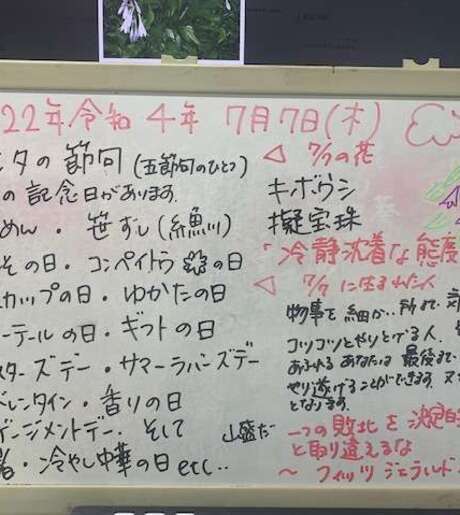 22年令和4年 7月7日(木)
タの節句(五節句のひとつ)
の記念日があります。
めん・笹ずし(糸魚川)
その日・コンペイトウの日
カップの日・ゆかたの日
ーテールの日・ギフトの日
スターズデー・サマーラバーズデー
レンタイン・香りの日
ゲージメントデー、そして 山盛だ
・冷やし中華の日etc..
◁ 7/7の花
キボウシ
擬宝珠
「冷静沈着な態度
◁ 7/7に生まれた人
物事を細か 所まで
コツコツとやりとげる人。
あふれるあなたは最後まで
やり遂げることができます。
となります。
一つの敗北を決定的
と取り違えるな
〜フィッツジェラルド